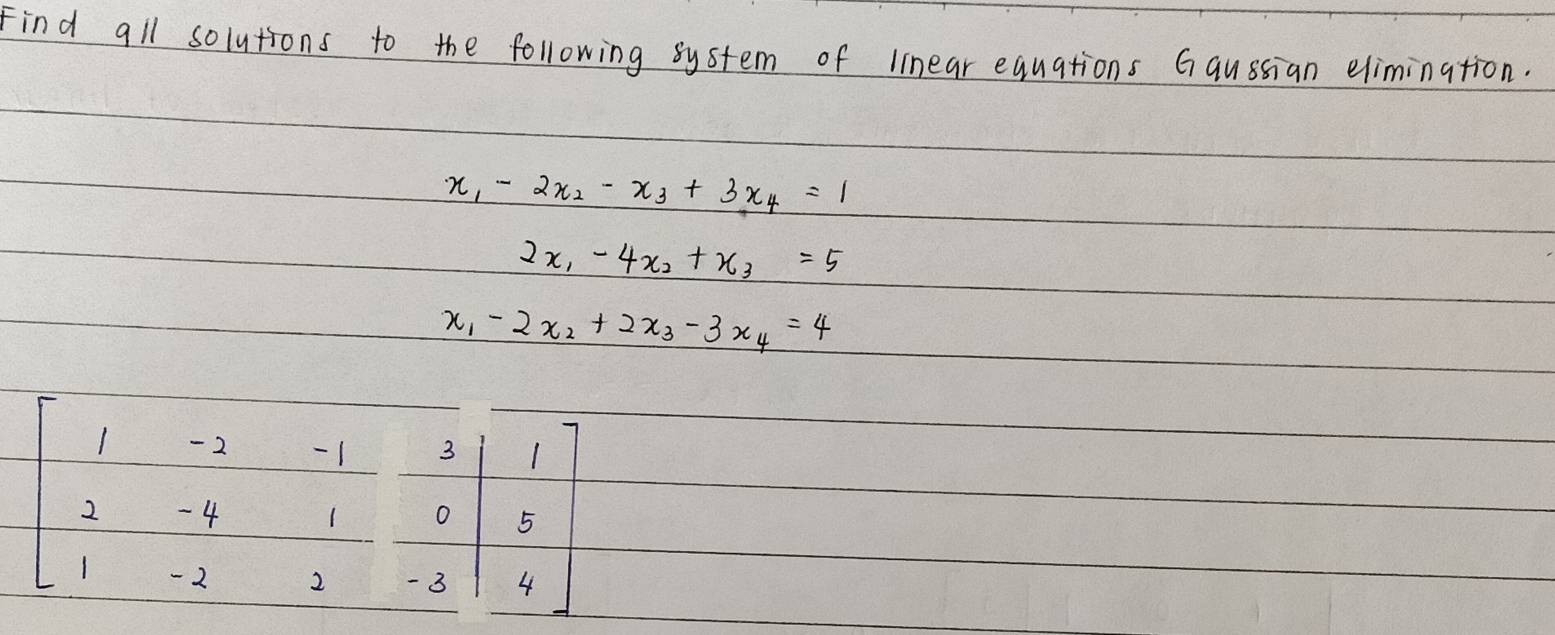 Find all solutions to the following system of linear equations Gaussian elimination.
x₁ - 2x₂ - x₃ + 3x₄ = 1
2x₁ - 4x₂ + x₃ = 5
x₁ - 2x₂ + 2x₃ - 3x₄ = 4
1 -2 -1 3 | 1
2 -4 1 0 | 5
1 -2 2 -3 | 4